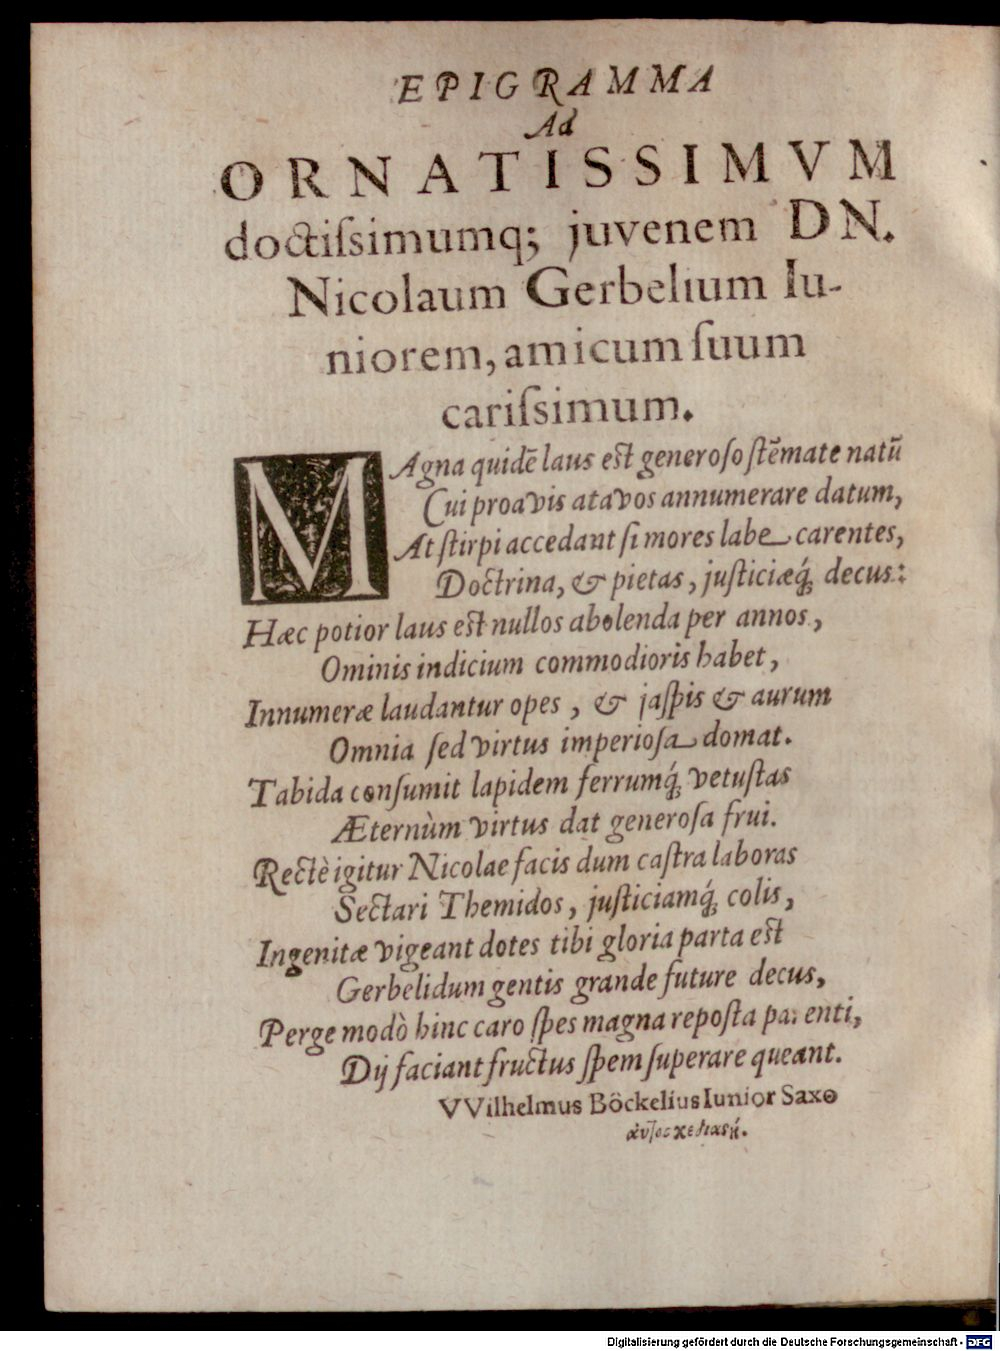 EPIGRAMMA
Ad
ORNATISSIMVM
doctiſsimumq; juvenem DN.
Nicolaum Gerbelium Iu-
niorem, amicum ſuum
cariſsimum.
MAgna quidē laus est generoſo ſtēmate natū
Cui proavis atavos annumerare datum,
At ſtirpi accedant ſi mores labe carentes,
Doctrina, & pietas, juſticiæq́; decus:
Hæc potior laus est nullos abolenda per annos,
Ominis indicium commodioris habet,
Innumeræ laudantur opes, & jaſpis & aurum
Omnia ſed virtus imperioſa domat.
Tabida conſumit lapidem ferrumq́; vetuſtas
Æternùm virtus dat generoſa frui.
Rectè igitur Nicolae facis dum caſtra laboras
Sectari Themidos, juſticiamq́; colis,
Ingenitæ vigeant dotes tibi gloria parta est
Gerbelidum gentis grande future decus,
Perge modò hinc caro ſpes magna repoſta parenti,
Dij faciant fructus ſpem ſuperare queant.
VVilhelmus Böckelius Iunior Saxo
Digitalisierung gefördert durch die Deutsche Forschungsgemeinschaft - DFG